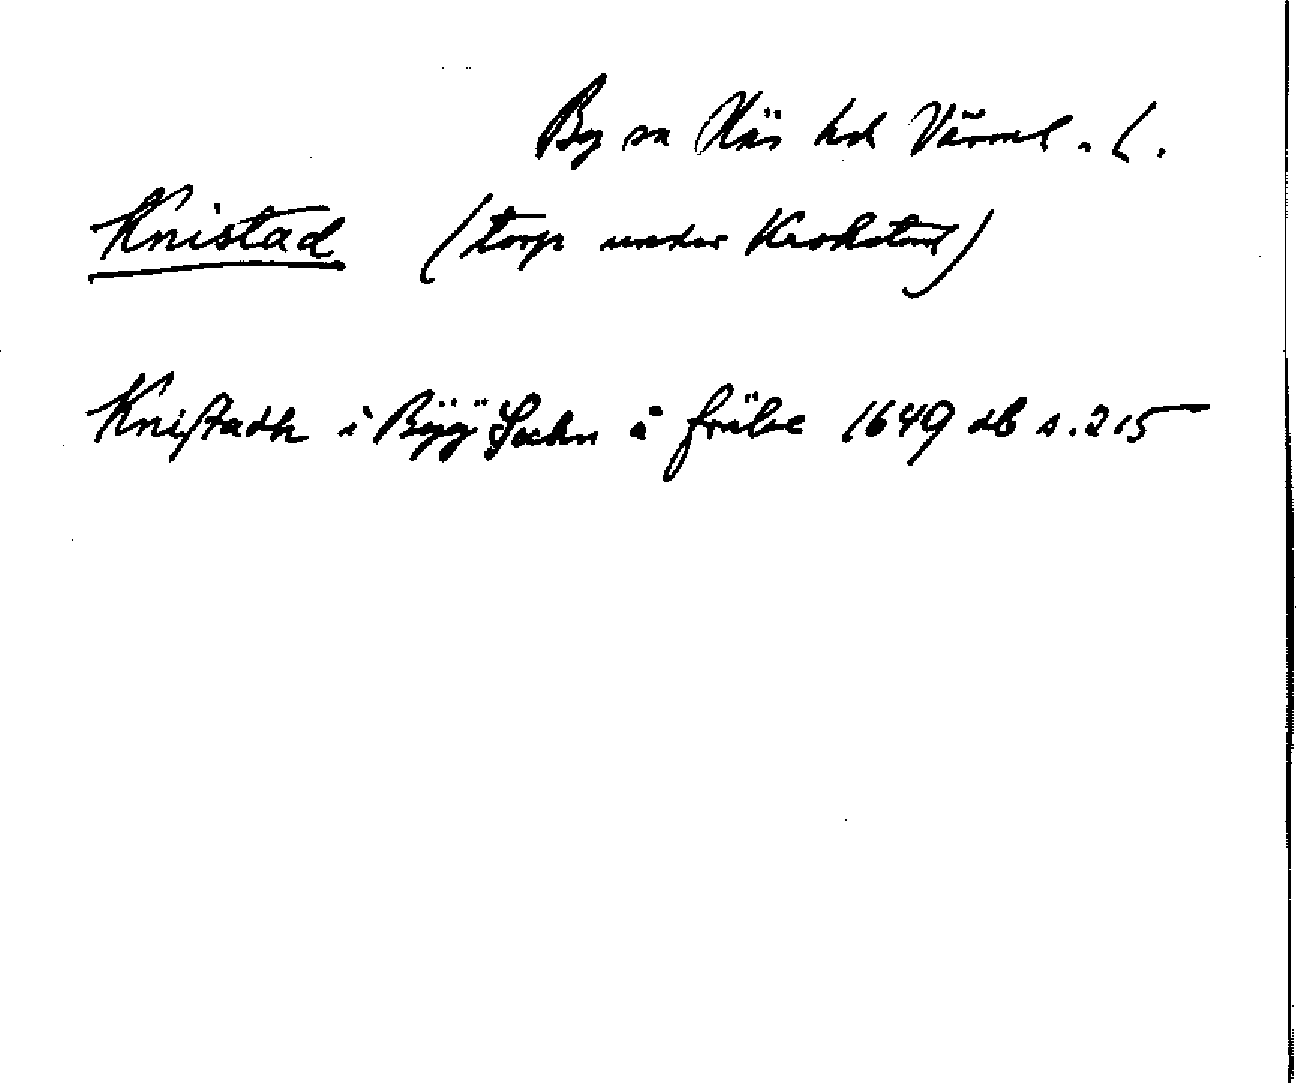 By sn Näs hd Värml. l.
Knistad (torp under Krokstad)
Knistadh i Bÿÿ Sochn å frälse 1649 db s. 215